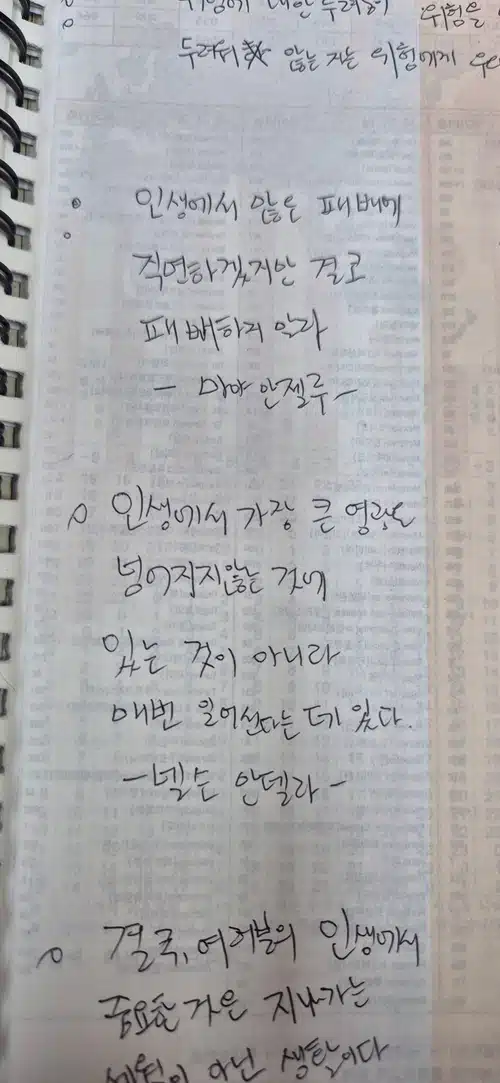 위험에 대한 두려움 위험을
두려워 않는 자는 위험에게
인생에서 많은 패배에
직면하겠지만 결코
패배하지 말라
- 마야 안젤루 -
인생에서 가장 큰 영광은
넘어지지않는 것에
있는 것이 아니라
매번 일어선다는 데 있다.
- 넬슨 만델라 -
결국, 여러분의 인생에서
중요한 것은 지나가는
세월이 아닌 생활이다